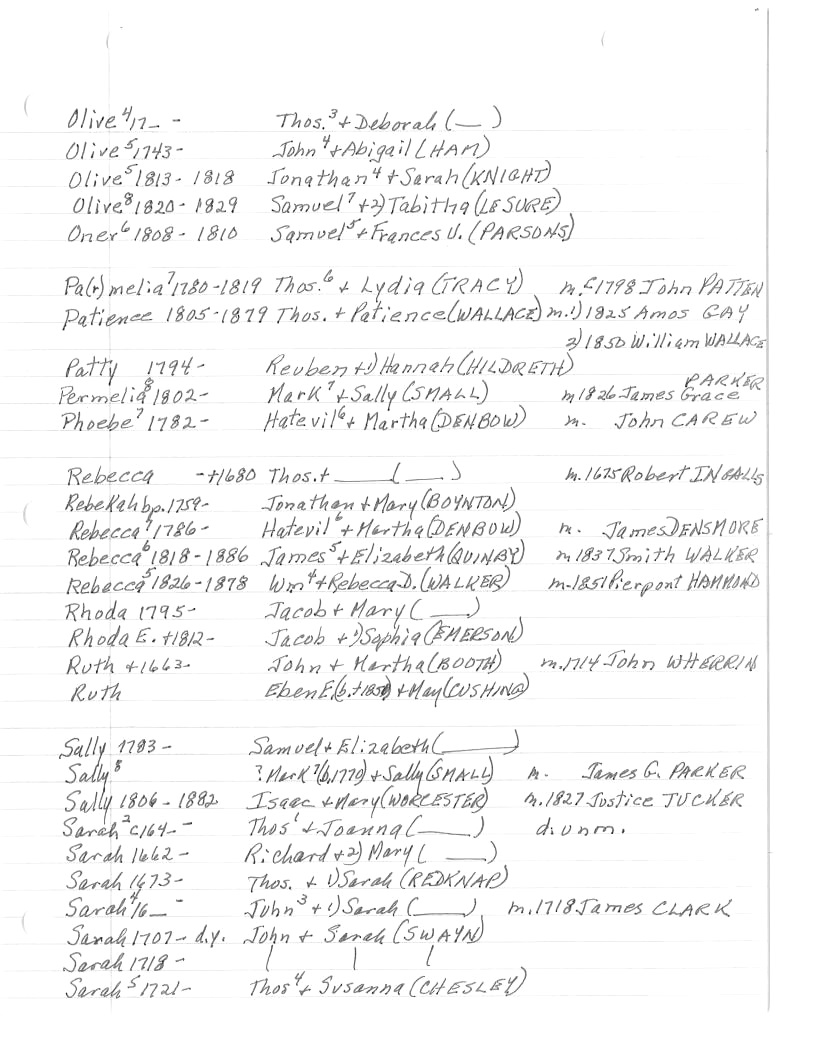 Olive⁴ 17_ - Thos.³ + Deborah (__)
Olive⁵ 1743- John⁴ + Abigail (HAM)
Olive⁵ 1813- 1818 Jonathan⁴ + Sarah (KNIGHT)
Olive⁸ 1820- 1829 Samuel⁷ + 2) Tabitha (LESURE)
Oner⁶ 1808- 1810 Samuel⁵ + Frances U. (PARSONS)
Pa(r)melia⁷ 1780-1819 Thos.⁶ + Lydia (TRACY) m.c1798 John PATTEN
Patience 1805-1879 Thos. + Patience (WALLACE) m.1) 1825 Amos GAY
2) 1850 William WALLACE
Patty 1794- Reuben +1) Hannah (HILDRETH)
PARKER
Permelia⁸ 1802- Mark⁷ + Sally (SMALL) m1826 James Grace
Phoebe⁷ 1782- Hatevil⁶ + Martha (DENBOW) m. John CAREW
Rebecca -+1680 Thos.+ ____(__) m.1675 Robert INGALLS
Rebekah bp.1759- Jonathan + Mary (BOYNTON)
Rebecca⁷ 1786- Hatevil⁶ + Martha (DENBOW) m. James DENSMORE
Rebecca⁶ 1818-1886 James⁵ + Elizabeth (QUINBY) m1837 Smith WALKER
Rebecca⁵ 1826-1878 Wm⁴ + Rebecca D. (WALKER) m.1851 Pierpont HAMMOND
Rhoda 1795- Jacob + Mary (___)
Rhoda E. +1812- Jacob +1) Sophia (EMERSON)
Ruth +1663- John + Martha (BOOTH) m.1714 John WHERRIN
Ruth Eben E (b.+1850) + May (CUSHING)
Sally 1793- Samuel + Elizabeth (____)
Sally⁸ ? Mark⁷ (b.1770) + Sally (SMALL) m. James G. PARKER
Sally 1806-1882 Isaac + Mary (WORCESTER) m.1827 Justice TUCKER
Sarah² c164_- Thos¹ + Joanna (____) d. unm.
Sarah 1662- Richard +2) Mary ( ___)
Sarah 1673- Thos. + 1) Sarah (REDKNAP)
Sarah⁴ 16_ - John³ + 1) Sarah (____) m.1718 James CLARK
Sarah 1707- d.y. John + Sarah (SWAYN)
Sarah 1718- | | |
Sarah⁵ 1721- Thos⁴ + Susanna (CHESLEY)